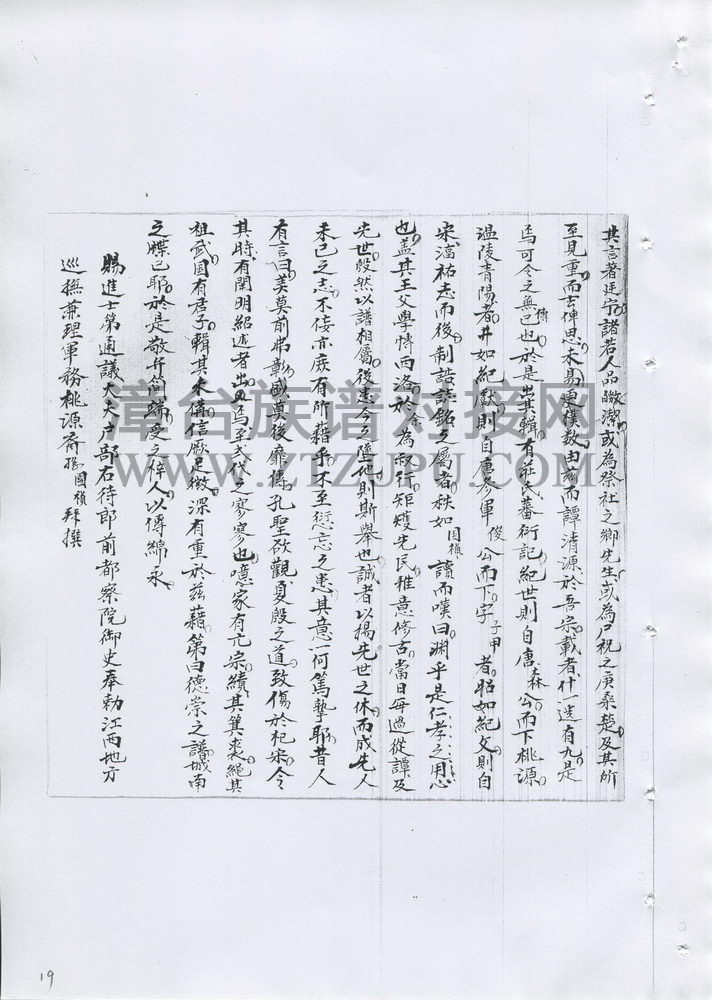 其言著廷宁諸若人品皦潔或為祭社之鄉先生或為尸祝之庚桑楚及其所
至見重而言俾思未易更樸數由茲而譚清源於吾宗載者什一逸有九是
烏可令之無傳已也於是出其輯有莊氏蕃衍記紀世則自唐森公而下桃源
温陵青陽者井如紀獻則自唐參軍俊公而下字子甲者昭如紀文則自
宋淳祐志而後制誥誌銘之屬者秩如國禎讀而嘆曰淵乎是仁孝之用心
也蓋其王父學博西洛於为叔行矩矱先民雅意修古當日每過從譚及
先世殷然以譜相屬後迄今之墮他則斯舉也誠者以揚先世之休而成先人
未已之志不佞亦庶有所藉乎不至愆忘之患其意一何篤摯耶昔人
有言曰美莫前弗彰盛莫後靡傳孔聖欲觀夏殷之道致傷於杞宋令
其時有開明紹述者出又烏至式代之寥寥也噫家有亢宗績其箕裘絕其
祖武国有君子輯其未備信厥足徵深有重於兹藉第曰德崇之譜城南
之牒已耶於是敬弁簡端受之梓人以傳綿永
賜進士第通議大夫户部右侍郎前都察院御史奉勅江西地方
巡撫兼理軍務桃源裔孫國禎拜撰
漳台族谱对接网
WWW.ZTZUPU.COM
19